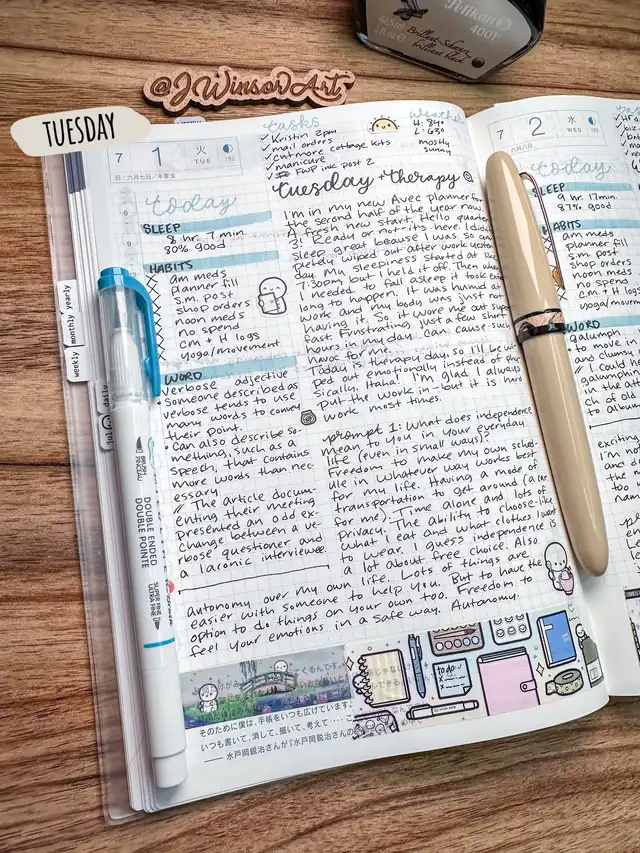 Pelikan
4001
62,5 ml
Brillant-Schwarz
brilliant black
@JWinsorArt
TUESDAY
7 1 火
TUE 182
tasks
✓ Kristin 2pm
✓ mail orders
✓ cut more cottage kits
✓ manicure
✓ FWP inc post 2
weather
H: 84°
L: 63°
mostly
sunny
today
SLEEP
8 hr 7 min.
80% good
HABITS
am meds
planner fill
s.m. post
shop orders
noon meds
no spend
Cm + H logs
yoga/movement
WORD
verbose adjective
• Someone described as
verbose tends to use
many words to convey
their point.
• Can also describe so-
mething, such as a
speech, that contains
more words than nec-
essary.
// The article docum-
enting their meeting
presented an odd ex-
change between a ve-
rbose questioner and
a laconic interviewee.
Tuesday + therapy
I'm in my new Avec planner for
the second half of the year now.
A fresh new start. Hello quarter
3! Ready or not-its here. I didn't
sleep great because I was so com
pletely wiped out after work yester
day. My sleepiness started at
7:30pm but I held it off. Then when
I needed to fall asleep it took
long to happen. It was humid at
work and my body was just not
having it. So it wore me out super
fast. Frustrating, just a few short
hours in my day. Can cause such
havoc for me.
Today is therapy day, so I'll be wi
ped out emotionally instead of phy
sically. Haha! I'm glad I always
put the work in-but it is hard
work most times.
prompt 1: What does independence
mean to you in your everyday
life (even in small ways)?
Freedom to make my own sched-
ule in whatever way works best
for my life. Having a mode of
transportation to get around (a car
for me). Time alone and lots of
privacy. The ability to choose-like
what I eat and what clothes I want
to wear. I guess independence is
a lot about free choice. Also
autonomy over my own life. Lots of things are
easier with someone to help you. But to have the
option to do things on your own too. Freedom to
feel your emotions in a safe way. Autonomy.
to do
そのために僕は、手帳をいつも広げています。
いつも書いて、消して、描いて、考えて……
—— 水戸岡鋭治さんが『水戸岡鋭治さんの
monthly yearly
weekly
daily
BRUSH
PINCEAU
DOUBLE ENDED
DOUBLE POINTE
SUPER FINE
ULTRA FINE
7 2 水
WED 183
today
SLEEP
9 hr. 17 min.
87% good
HABITS
am meds
planner fill
s.m. post
shop orders
noon meds
no spend
Cm + H logs
yoga/movement
WORD
galumph
• to move in
and clumsy
// I could